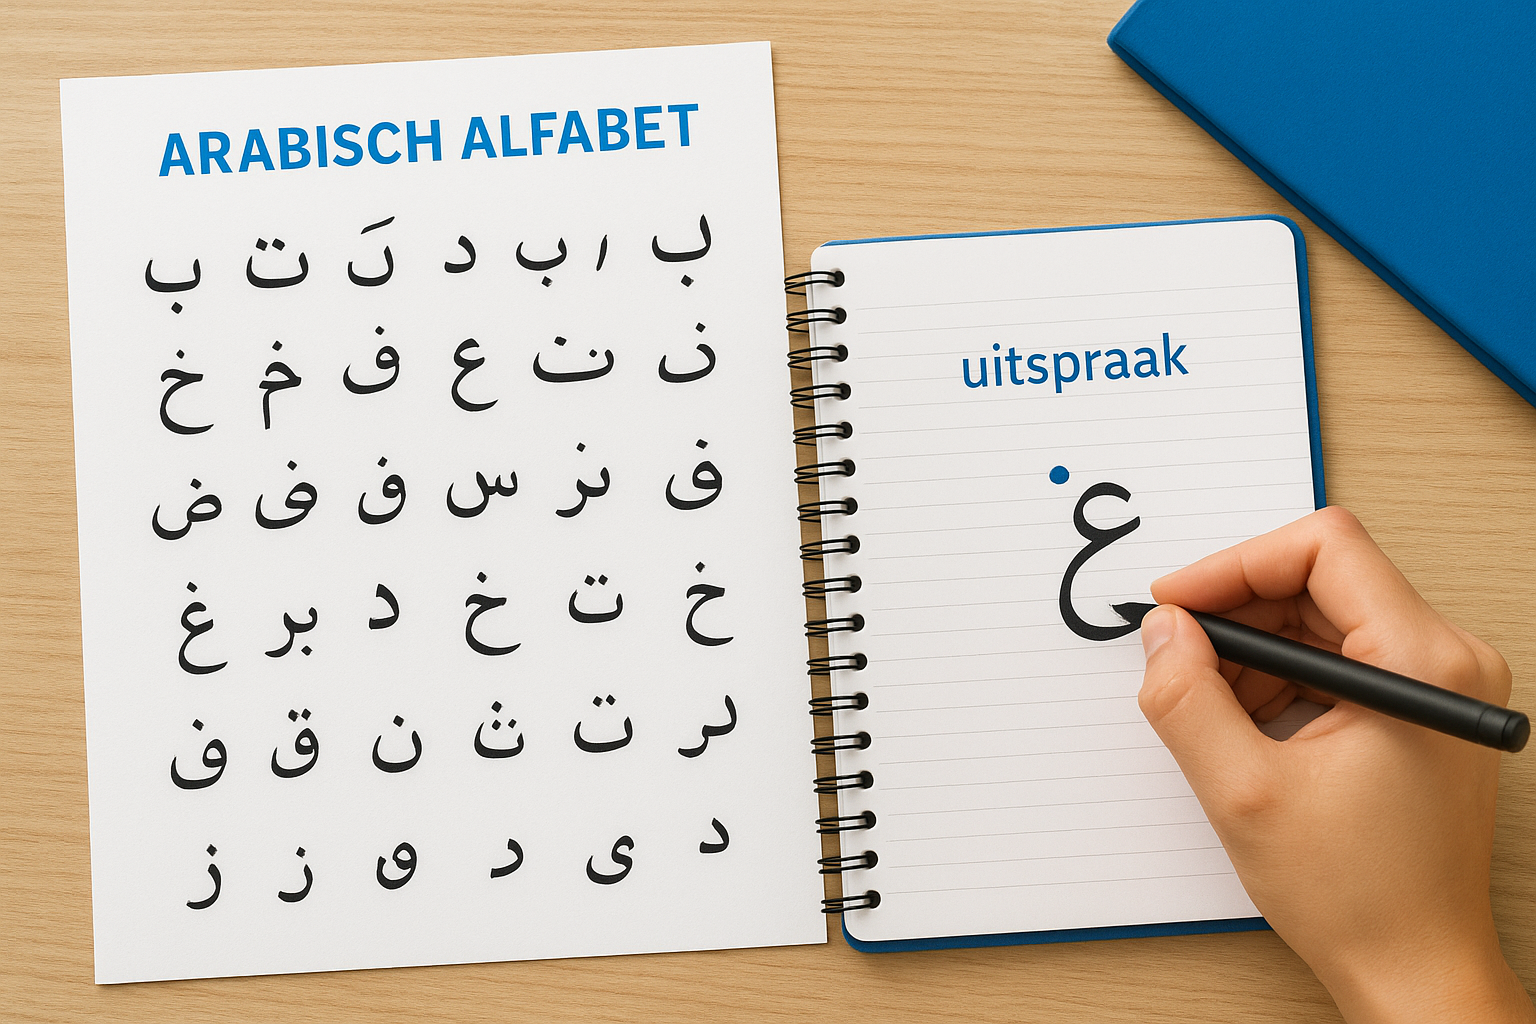 ARABISCH ALFABET
ب ب د ت ب
ن ع ف خ
ف س ف ف ض
خ ت خ د بر غ
لر ت ث ن ق ف
د ى د ز ز
uitspraak
غ